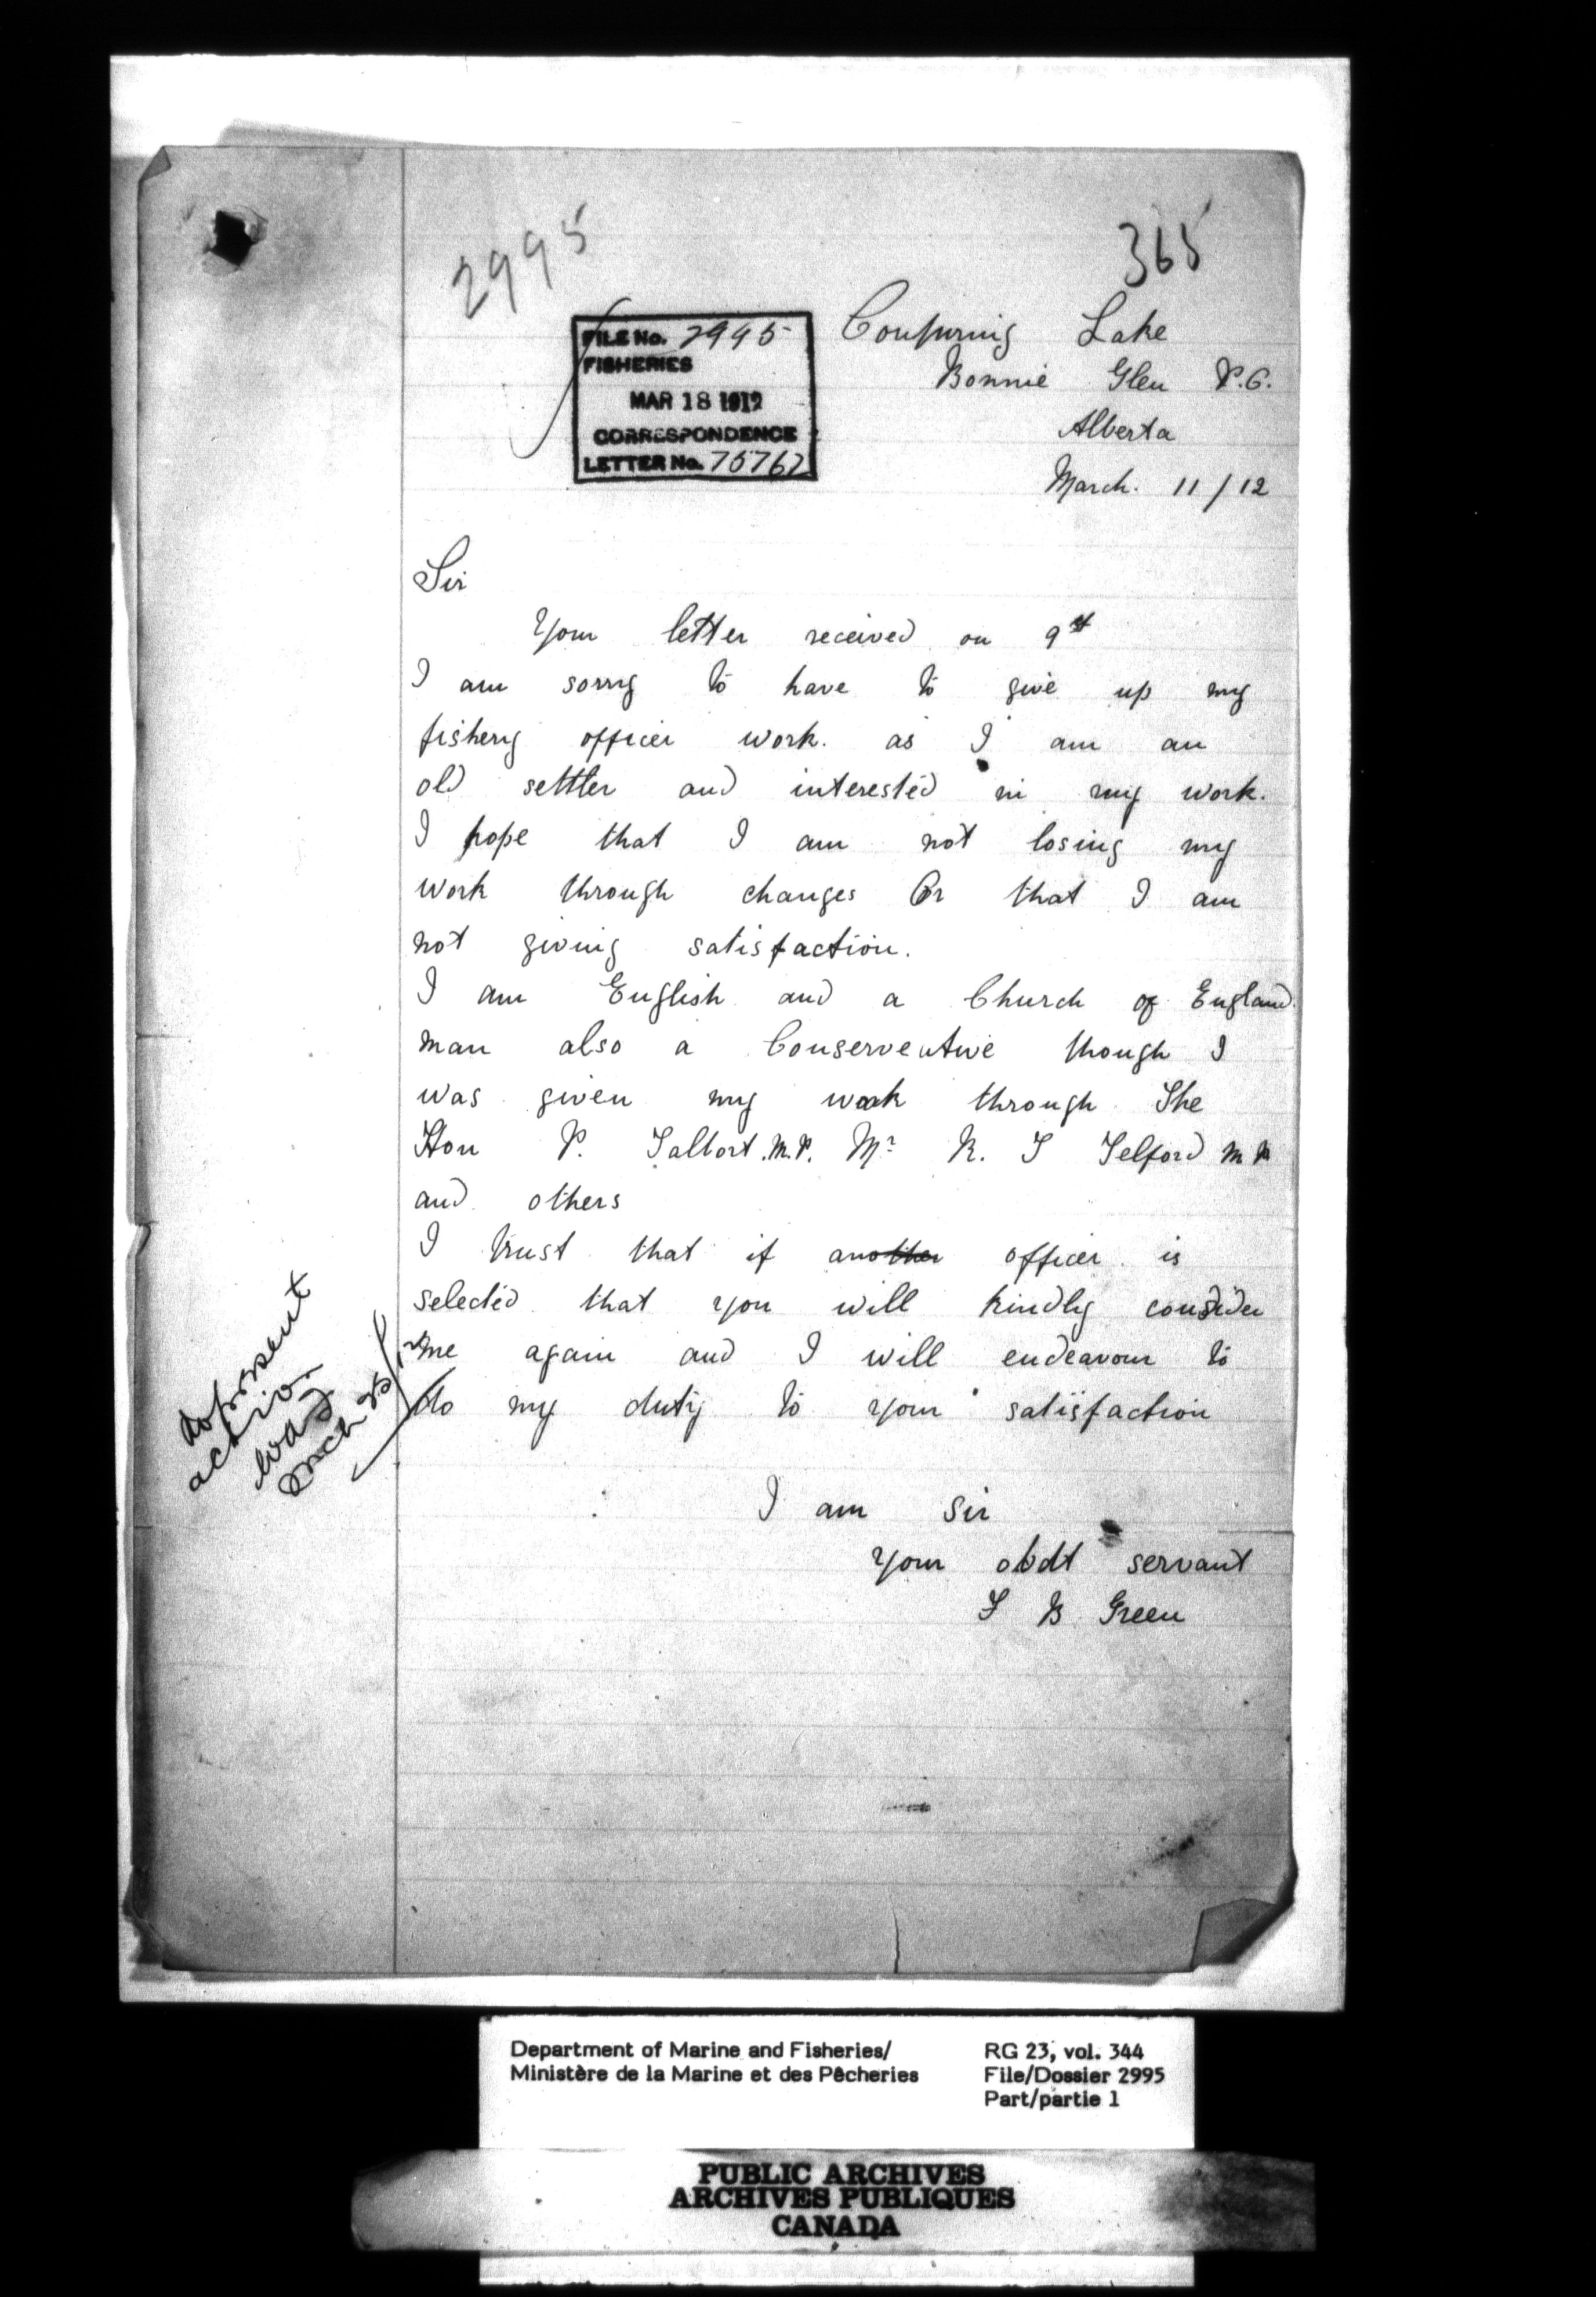 2995
365
FILE No. 2995
FISHERIES
MAR 18 1912
CORRESPONDENCE
LETTER No. 75767
Conjuring Lake
Bonnie Glen P.O.
Alberta
March. 11/12
Sir
Your letter received on 9st
I am sorry to have to give up my
fishery officer work. as I am an
old settler and interested in my work.
I hope that I am not losing my
work through changes Or that I am
not giving satisfaction.
I am English and a Church of England
man also a Conservative though I
was given my work through The
Hon P. Talbort. M.P. Mr R. T Telford M P
and others
I trust that if another officer is
selected that you will kindly consider
me again and I will endeavour to
do my duty to your satisfaction
No present
action
I am Sir
Your obdt servant
T B Green
Department of Marine and Fisheries/
Ministère de la Marine et des Pêcheries
RG 23, vol. 344
File/Dossier 2995
Part/partie 1
PUBLIC ARCHIVES
ARCHIVES PUBLIQUES
CANADA